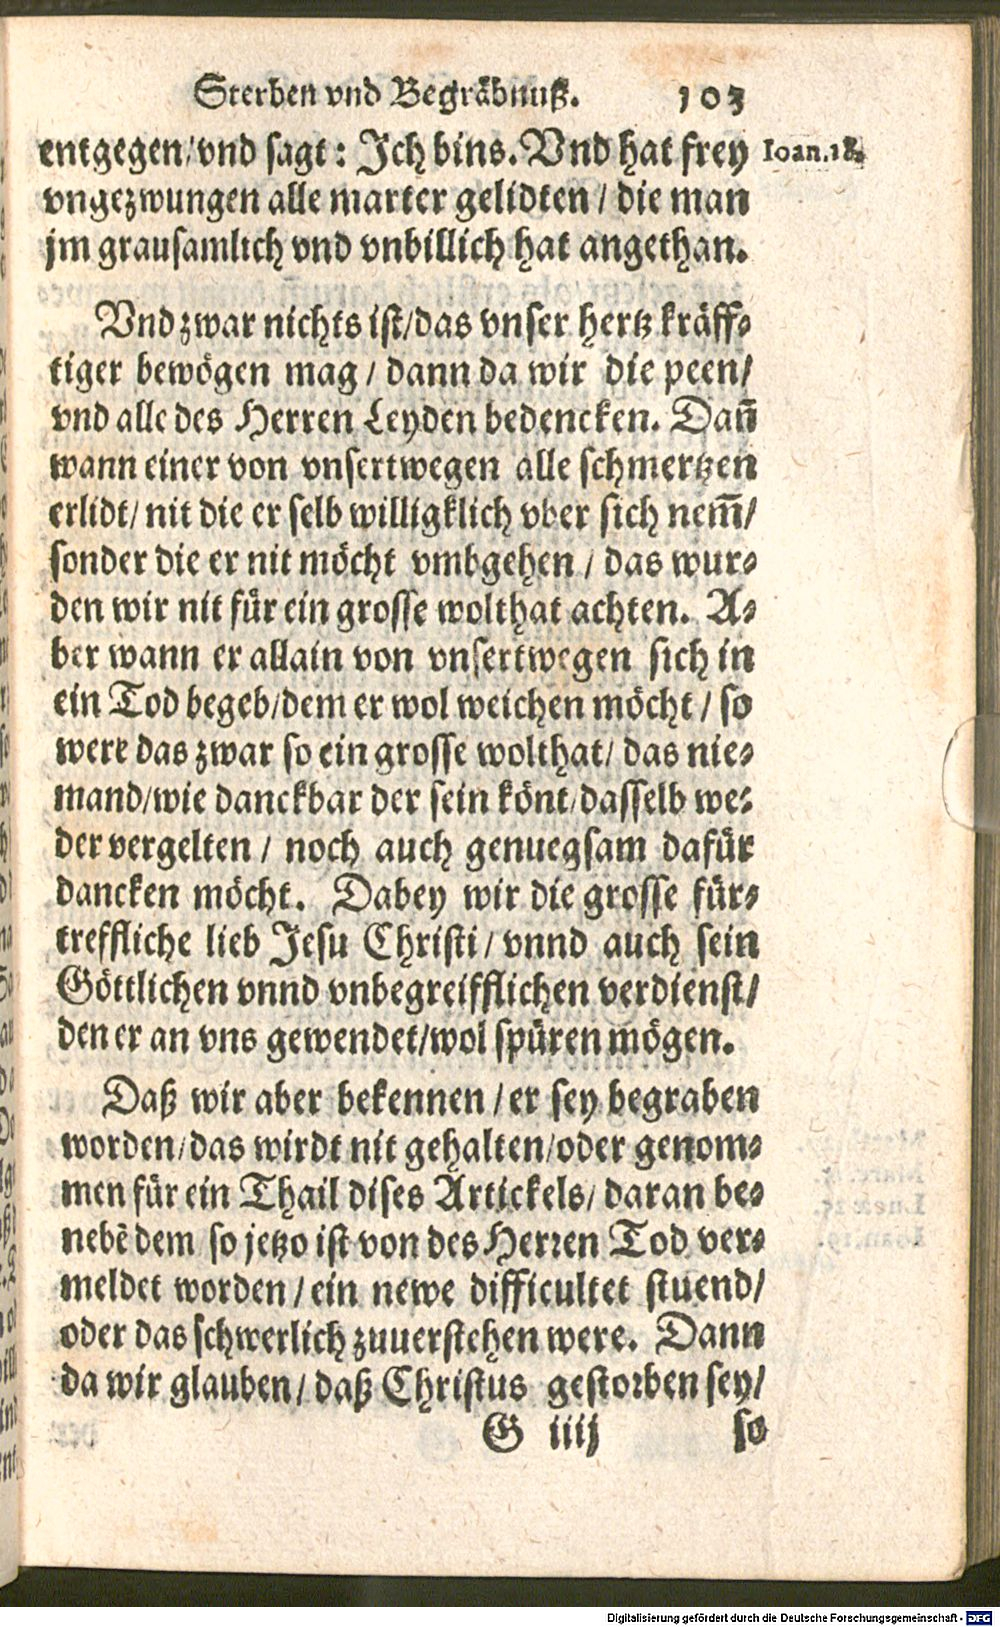 Sterben vnd Begräbnuß. 103
entgegen/vnd sagt: Jch bins. Vnd hat frey Ioan.18.
vngezwungen alle marter gelidten / die man
jm grausamlich vnd vnbillich hat angethan.
Vnd zwar nichts ist/das vnser hertz kräff-
tiger bewögen mag / dann da wir die peen/
vnd alle des Herren Leyden bedencken. Dañ
wann einer von vnsertwegen alle schmertzen
erlidt/ nit die er selb willigklich vber sich nem̃/
sonder die er nit möcht vmbgehen / das wur-
den wir nit für ein grosse wolthat achten. A-
ber wann er allain von vnsertwegen sich in
ein Tod begeb/dem er wol weichen möcht / so
were das zwar so ein grosse wolthat/ das nie-
mand/wie danckbar der sein könt/dasselb we-
der vergelten / noch auch genuegsam dafür
dancken möcht. Dabey wir die grosse für-
treffliche lieb Jesu Christi / vnnd auch sein
Göttlichen vnnd vnbegreifflichen verdienst/
den er an vns gewendet/wol spüren mögen.
Daß wir aber bekennen / er sey begraben
worden/das wirdt nit gehalten/oder genom-
men für ein Thail dises Artickels/ daran be-
nebẽ dem so jetzo ist von des Herren Tod ver-
meldet worden / ein newe difficultet stuend/
oder das schwerlich zuuerstehen were. Dann
da wir glauben/ daß Christus gestorben sey/
G iiij so
Digitalisierung gefördert durch die Deutsche Forschungsgemeinschaft - DFG